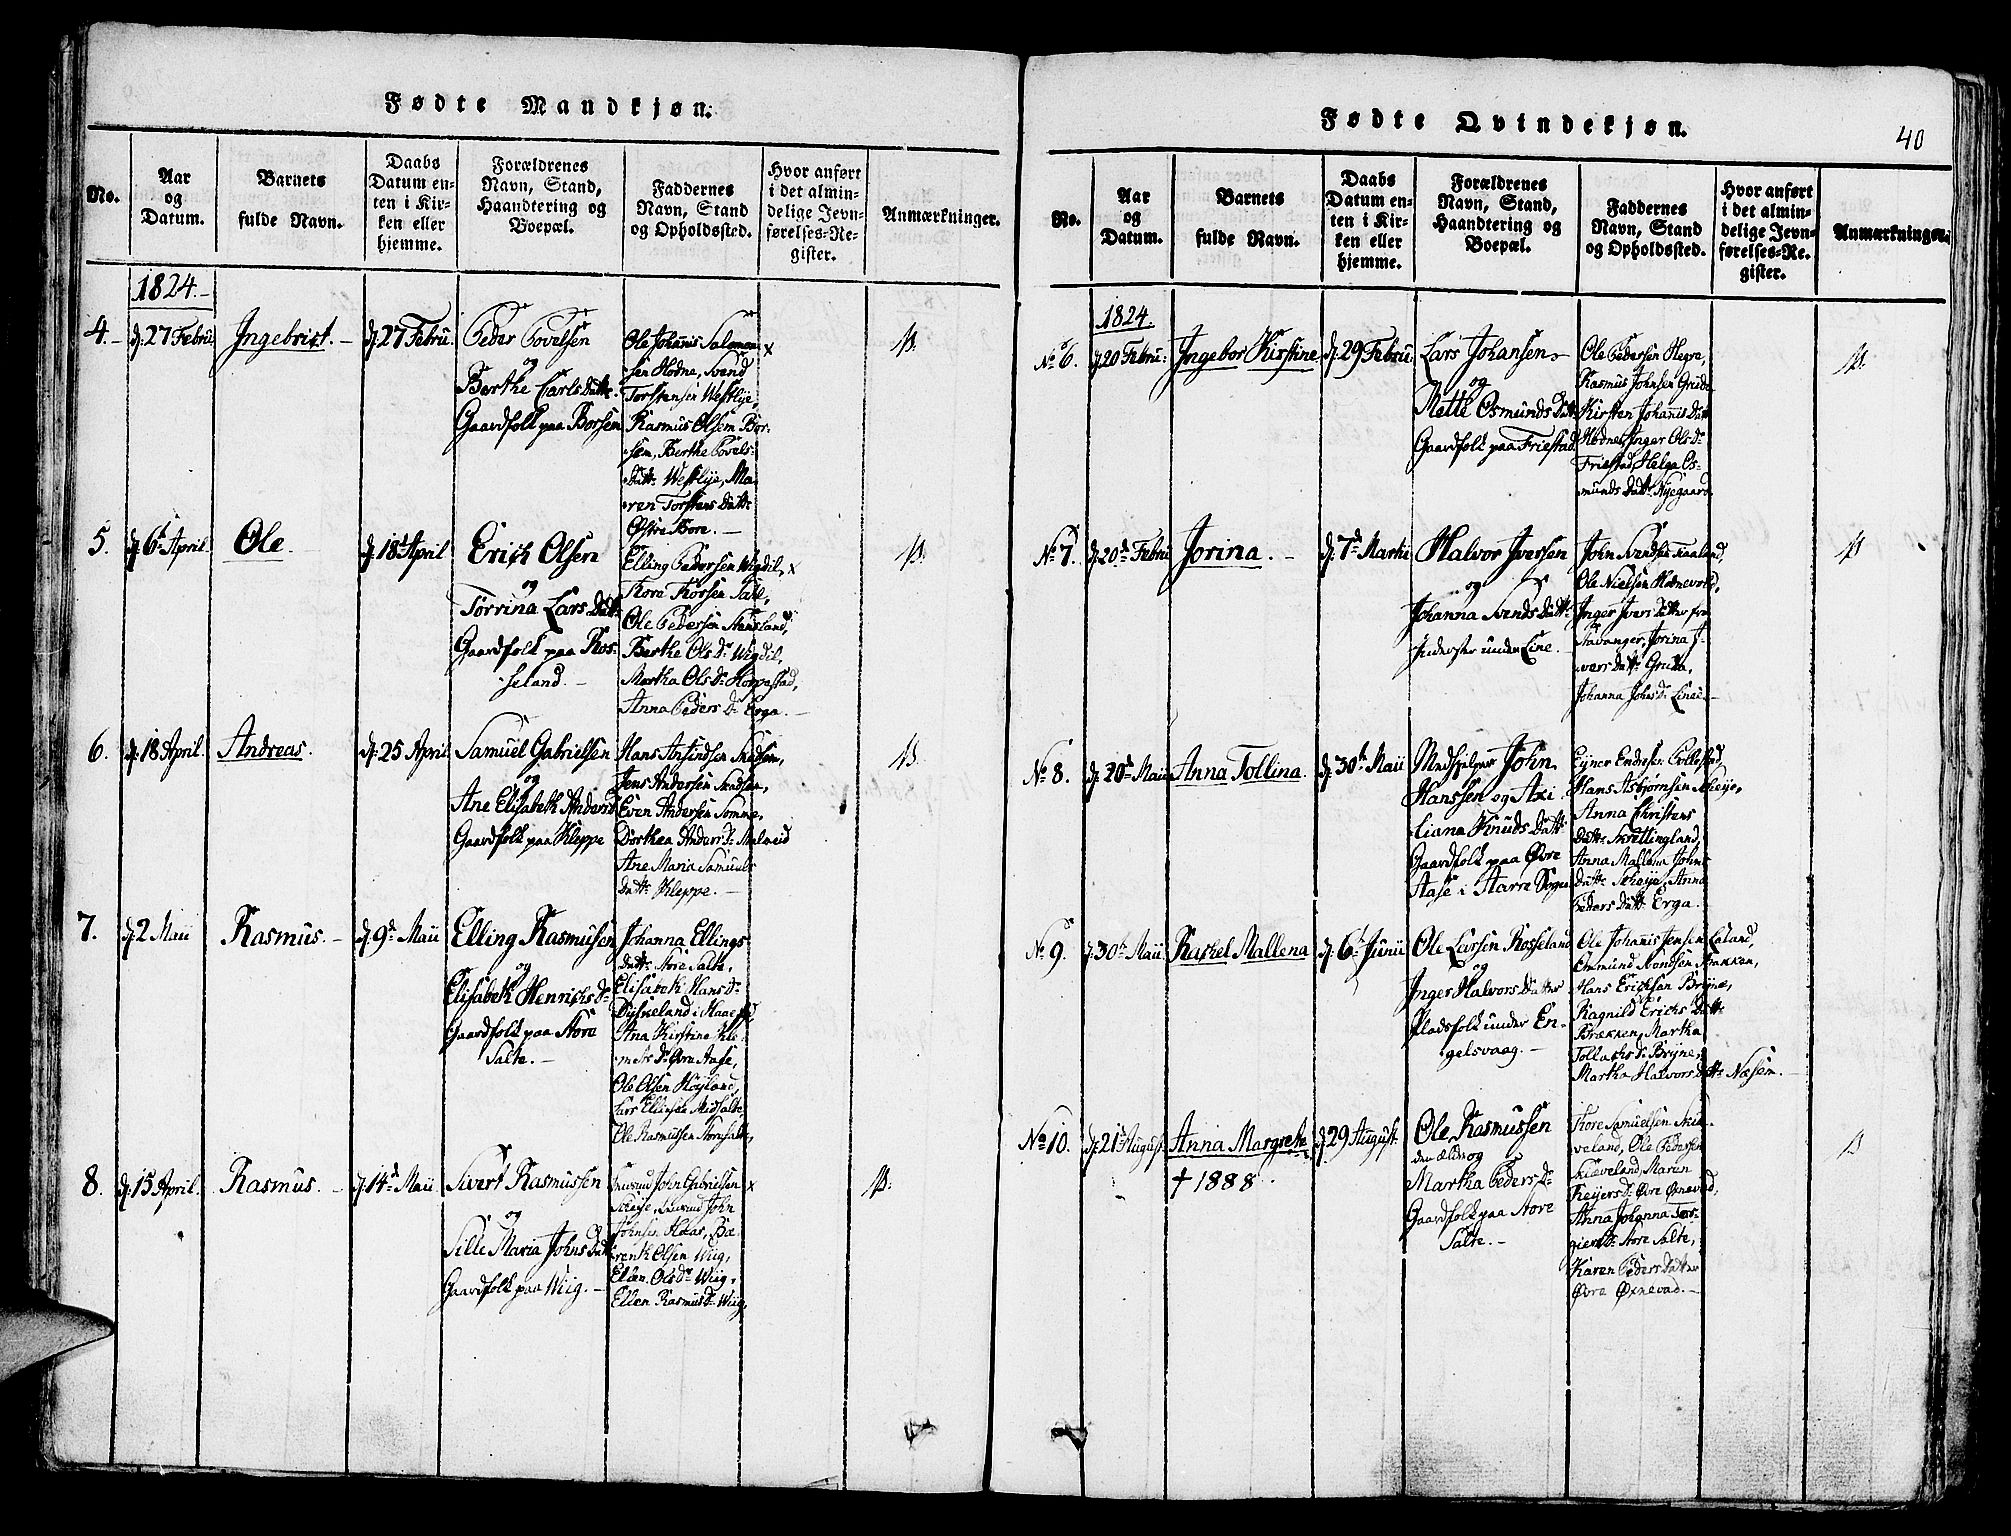 Fødte Mandkjøn.
No.
Aar
og
Datum.
Barnets
fulde Navn.
Daabs
Datum en-
ten i Kir-
ken eller
hjemme.
Forældrenes
Navn, Stand,
Haandtering og
Boepæl.
Faddernes
Navn, Stand
og Opholdssted.
Hvor anført
i det almin-
delige Jevn-
førelses-Re-
gister.
Anmærkninger.
1824.
4.
d. 27 Febru
Ingebrict.
d. 27 Febru.
Peder Povelsen
og
Berthe Carls Datt.
Gaardfolk paa Borsem
Ole Johanis Salomon
sen Hodne, Svend
Torstensen Westlye,
Rasmus Olsem Bor-
sem, Berthe Povels-
Datt. Westlye, Ma
ren Torstens Datt.
Østre Bore.
x
5.
d. 6t April.
Ole.
d. 18d April
Erich Olsen
og
Torrina Lars Datt.
Gaardfolk paa Ros-
seland.
Elling Pedersen Wigdil,
Tore Torsen Salte,
Ole Pedersen Stangeland,
Berthe Ols Dr Wigdil,
Martha Ols Dr Horpestad,
Anna Peders D. Erga.
x
6.
d. 18 April.
Andreas.
d. 25 April
Samuel Gabrielsen
og
Ane Elisabeth Anders D
Gaardfolk paa Kleppe
Jens Andersen
Even Andersen Somme,
Dorthea Anders D. Malmeid
Ane Maria Samuels
Datt. Kleppe.
7.
d. 2 Maii
Rasmus.
d. 9d Maii
Elling Rasmusen
og
Elisabeth Henrichs D.
Gaardfolk paa Store
Salte.
Johanna Ellings
Datt. Store Salte,
Elisabeth Hans D.
Dyskeland i Haae
Ana Kirstine Kle-
Ole Olsen Høyland,
Lars Ellingsen Midsalte,
Ole Rasmussen Storesalte,
8.
d. 15 April.
Rasmus.
d. 14d Maii
Sivert Rasmussen
og
Sille Maria Johns Datt.
Gaardfolk paa Wiig.
John Gabrielsen
John
Johnsen Haas, Be
renth Olsen Wiig,
Elen Ols Dr Wiig,
Ellen Rasmus D. Wiig,
x
Fødte Qvindekjøn.
40
No.
Aar
og
Datum.
Barnets
fulde Navn.
Daabs
Datum en-
ten i Kir-
ken eller
hjemme.
Forældrenes
Navn, Stand,
Haandtering og
Boepæl.
Faddernes
Navn, Stand
og Opholdssted.
Hvor anført
i det almin-
delige Jevn-
førelses-Re-
gister.
Anmærkninger.
1824.
No 6.
d. 20 Febru:
Ingebor Kirstine
d. 29 Febru.
Lars Johansen
og
Mette Osmunds Datt.
Gaardfolk paa Friestad.
Ole Pedersen Hegre,
Rasmus Johnsen Grude
Kirsten Johanis Datt.
Hodne, Inger Ols D.
Friestad, Helga Os-
munds Datt. Nyegaard.
No 7.
d. 20d Febru
Jorina.
d. 7d Martii
Halvor Iversen
og
Johanna Svends Datt.
Inderster under Line.
John Svendsen Taaland,
Ole Nielsen Hodnevold,
Inger Ivers Datter fra
Stavanger, Jorina I-
vers Datt. Gruda,
Johanna Johs D. Line.
No 8.
d. 20d Maii
Anna Tollina.
d. 30t Maii
Medhjelper John
Hanssen og Axi-
liana Knuds Datt.
Gaardfolk paa Øvre
Aase i Aarre Sogn
Ejner Endres: Pollestad,
Hans Asbjørnsen
Anna Christens
Datt. Skrettingland,
Anna Mallena Johns
Datt. Scheije, Anna
Peders Datt. Erga.
No 9.
d. 30t Maii
Rachel Mallena
d. 6t Junii
Ole Larsen Rosseland
og
Inger Halvors Datter
Pladsfolk under En-
gelsvaag.
Ole Johanis Jensen Laland,
Ommund Brækken,
Hans Erichsen Bryne,
Ragnild Erichs Datt.
Brækken, Martha
Tollachs D. Bryne,
Martha Halvors Datt. Næsem.
No 10.
d. 21d August.
Anna Margrete
† 1888
d. 29 August.
Ole Rasmussen
den Ældre og
Martha Peders D.
Gaardfolk paa Store
Salte.
Tore Samuelsen
Ole Pedersen
Maren
Reijers D. Øvre Øxnevad,
Anna Johanna Tor-
giers D. Store Salte,
Karen Peders Datter
Øvre Øxnevad.